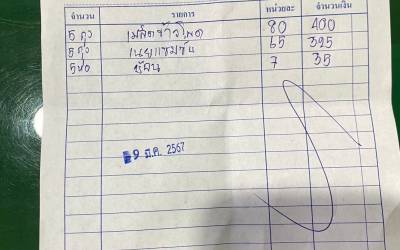 จำนวน รายการ หน่วยละ จำนวนเงิน
5 ถุง เมล็ดข้าวโพด 80 400
5 ถุง เนยแชมชั่น 65 325
5 ห่อ ช้อน 7 35
9 ธ.ค. 2567